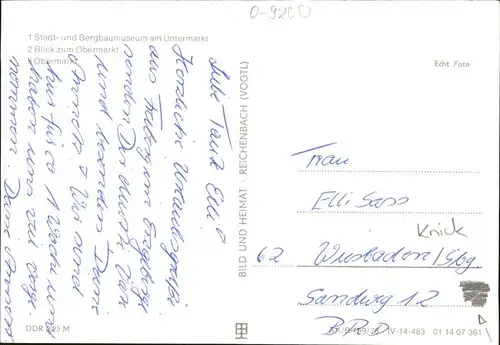 0-9200
1 Stadt- und Bergbaumuseum am Untermarkt
2 Blick zum Obermarkt
3 Obermarkt
Echt Foto
Liebe Tante Elli!
Herzliche Urlaubsgrüße
aus Freiberg im Erzgebirge
senden Dir
und Deine
Wir sind
hier für ca 1 Woche und
haben uns viel vorge-
nommen. Deine
BILD UND HEIMAT · REICHENBACH (VOGTL)
Frau
Elli Sass
Knick
62 Wiesbaden/Sbg.
Sandweg 12
BRD
DDR 0,25 M
IV-14-483 01 14 07 361